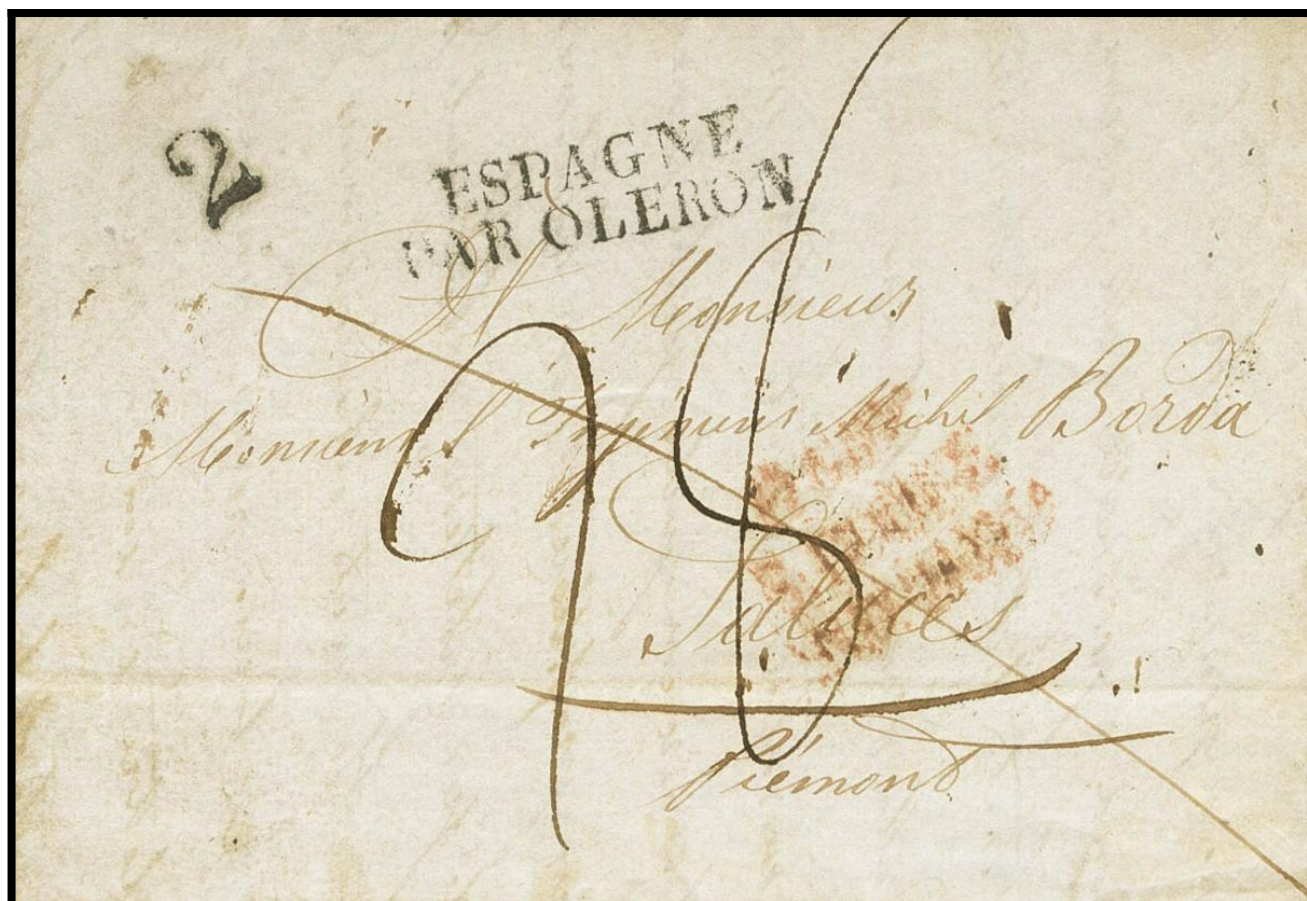 2
ESPAGNE
PAR OLERON
A Monsieur
Monsieur l'Ingénieur Michel Borda
Saluces
Piémont